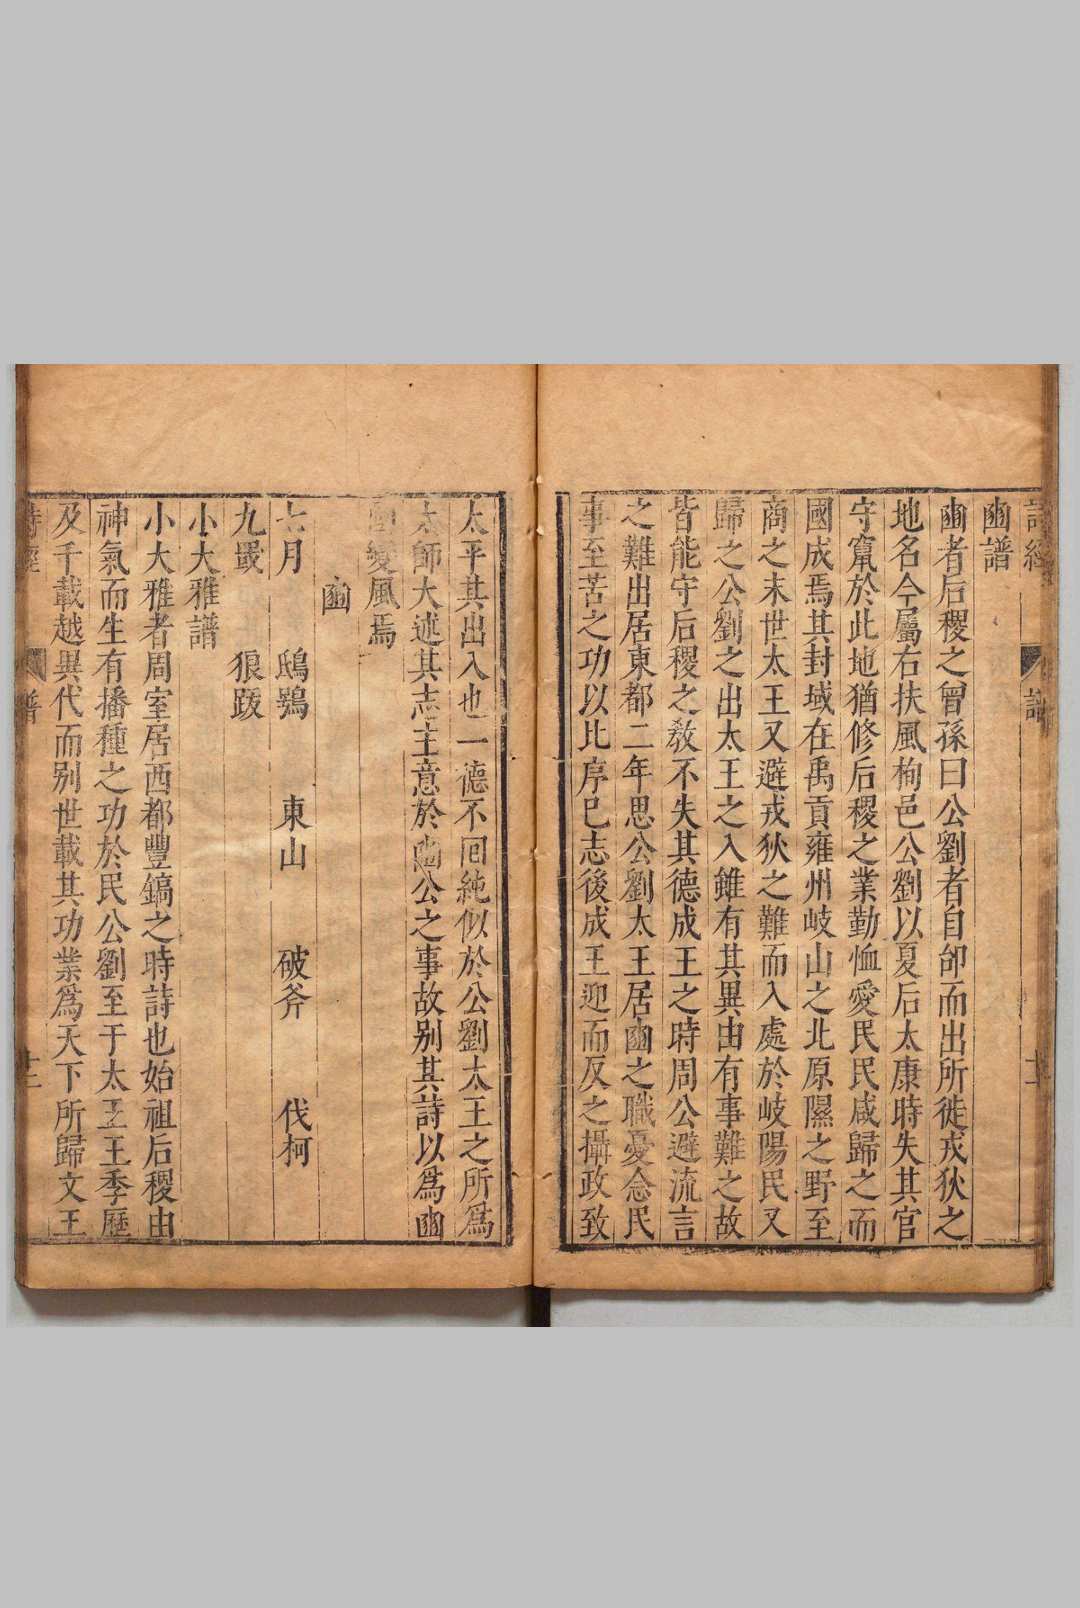 詩經 譜 十一
豳譜
豳者后稷之曾孫曰公劉者自邰而出所徙戎狄之
地名今屬右扶風栒邑公劉以夏后太康時失其官
守竄於此地猶修后稷之業勤恤愛民民咸歸之而
國成焉其封域在禹貢雍州岐山之北原隰之野至
商之末世太王又避戎狄之難而入處於岐陽民又
歸之公劉之出太王之入雖有其異由有事難之故
皆能守后稷之敎不失其德成王之時周公避流言
之難出居東都二年思公劉太王居豳之職憂念民
事至苦之功以比序已志後成王迎而反之攝政致
太平其出入也一德不回純似於公劉太王之所爲
太師大述其志主意於豳公之事故别其詩以爲豳
國變風焉
豳
七月 鴟鴞 東山 破斧 伐柯
九罭 狼跋
小大雅譜
小大雅者周室居西都豐鎬之時詩也始祖后稷由
神氣而生有播種之功於民公劉至于太王王季歷
及千載越異代而别世載其功業爲天下所歸文王
詩經 譜 十一